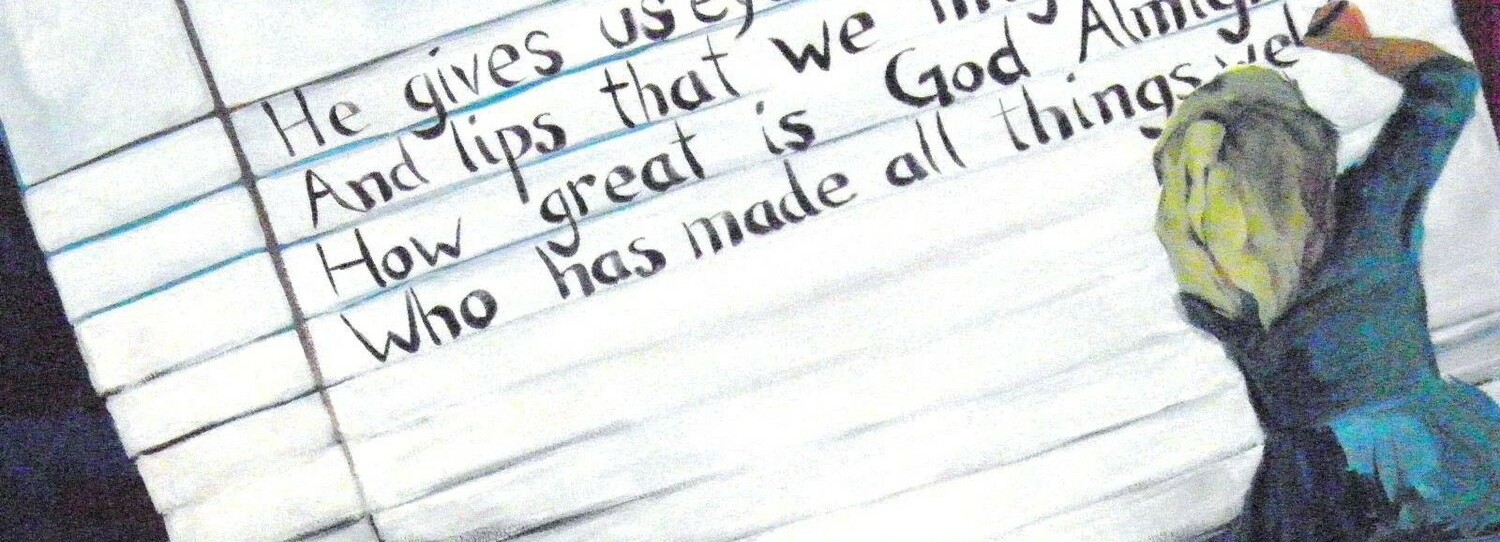 He gives us
And lips that we
How great is God
Who has made all things